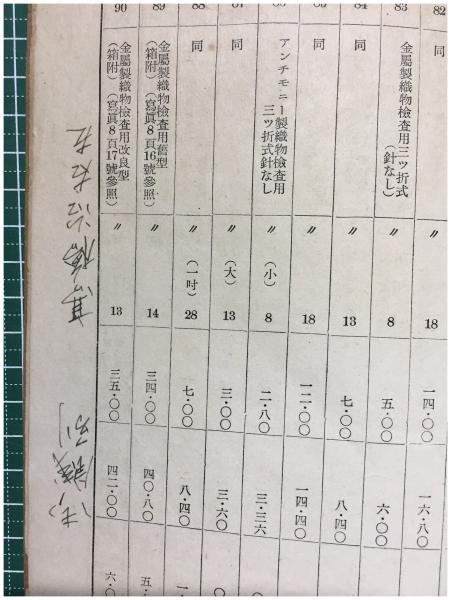 82 同 〃 18 一四・〇〇 一六・八〇
83 金屬製織物檢査用三ツ折式
(針なし) 〃 8 五・〇〇 六・〇〇
84 同 〃 13 七・〇〇 八・四〇
同 〃 18 一二・〇〇 一四・四〇
アンチモニー製織物檢査用
三ツ折式針なし 〃 (小) 8 二・八〇 三・三六
同 〃 (大) 13 三・〇〇 三・六〇
88 同 〃 (一吋) 28 七・〇〇 八・四〇
89 金屬製織物檢査用舊型
(箱附) (寫眞8頁16號參照) 〃 14 三四・〇〇 四〇・八〇
90 金屬製織物檢査用改良型
(箱附) (寫眞8頁17號參照) 〃 13 三五・〇〇 四二・〇〇